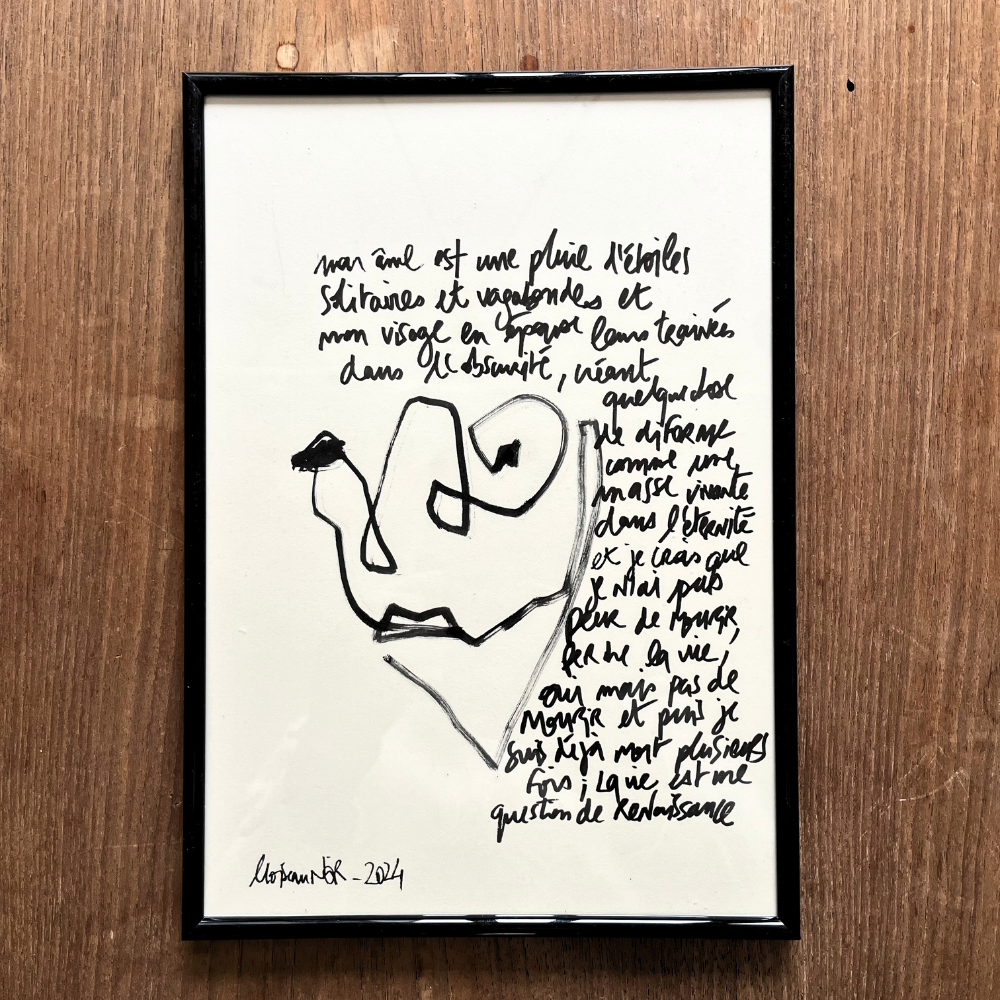 mon âme est une pluie d'étoiles
solitaires et vagabondes et
mon visage en épouse leurs traînées
dans l'obscurité, créant
quelque chose
de difforme
comme une
masse vivante
dans l'éternité
et je crois que
je n'ai pas
peur de mourir,
perdre la vie,
oui mais pas de
mourir et puis je
suis déjà mort plusieurs
fois ; la vie est une
question de renaissance
L'oiseau NOR - 2024